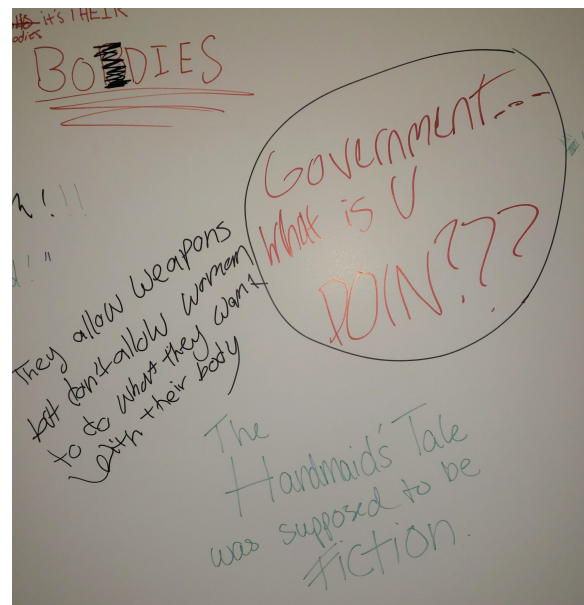 it's THEIR
BODIES
Government...
What is U
DOIN???
They allow weapons
but don't allow woman
to do what they want
with their body
The
Handmaid's Tale
was supposed to be
Fiction.